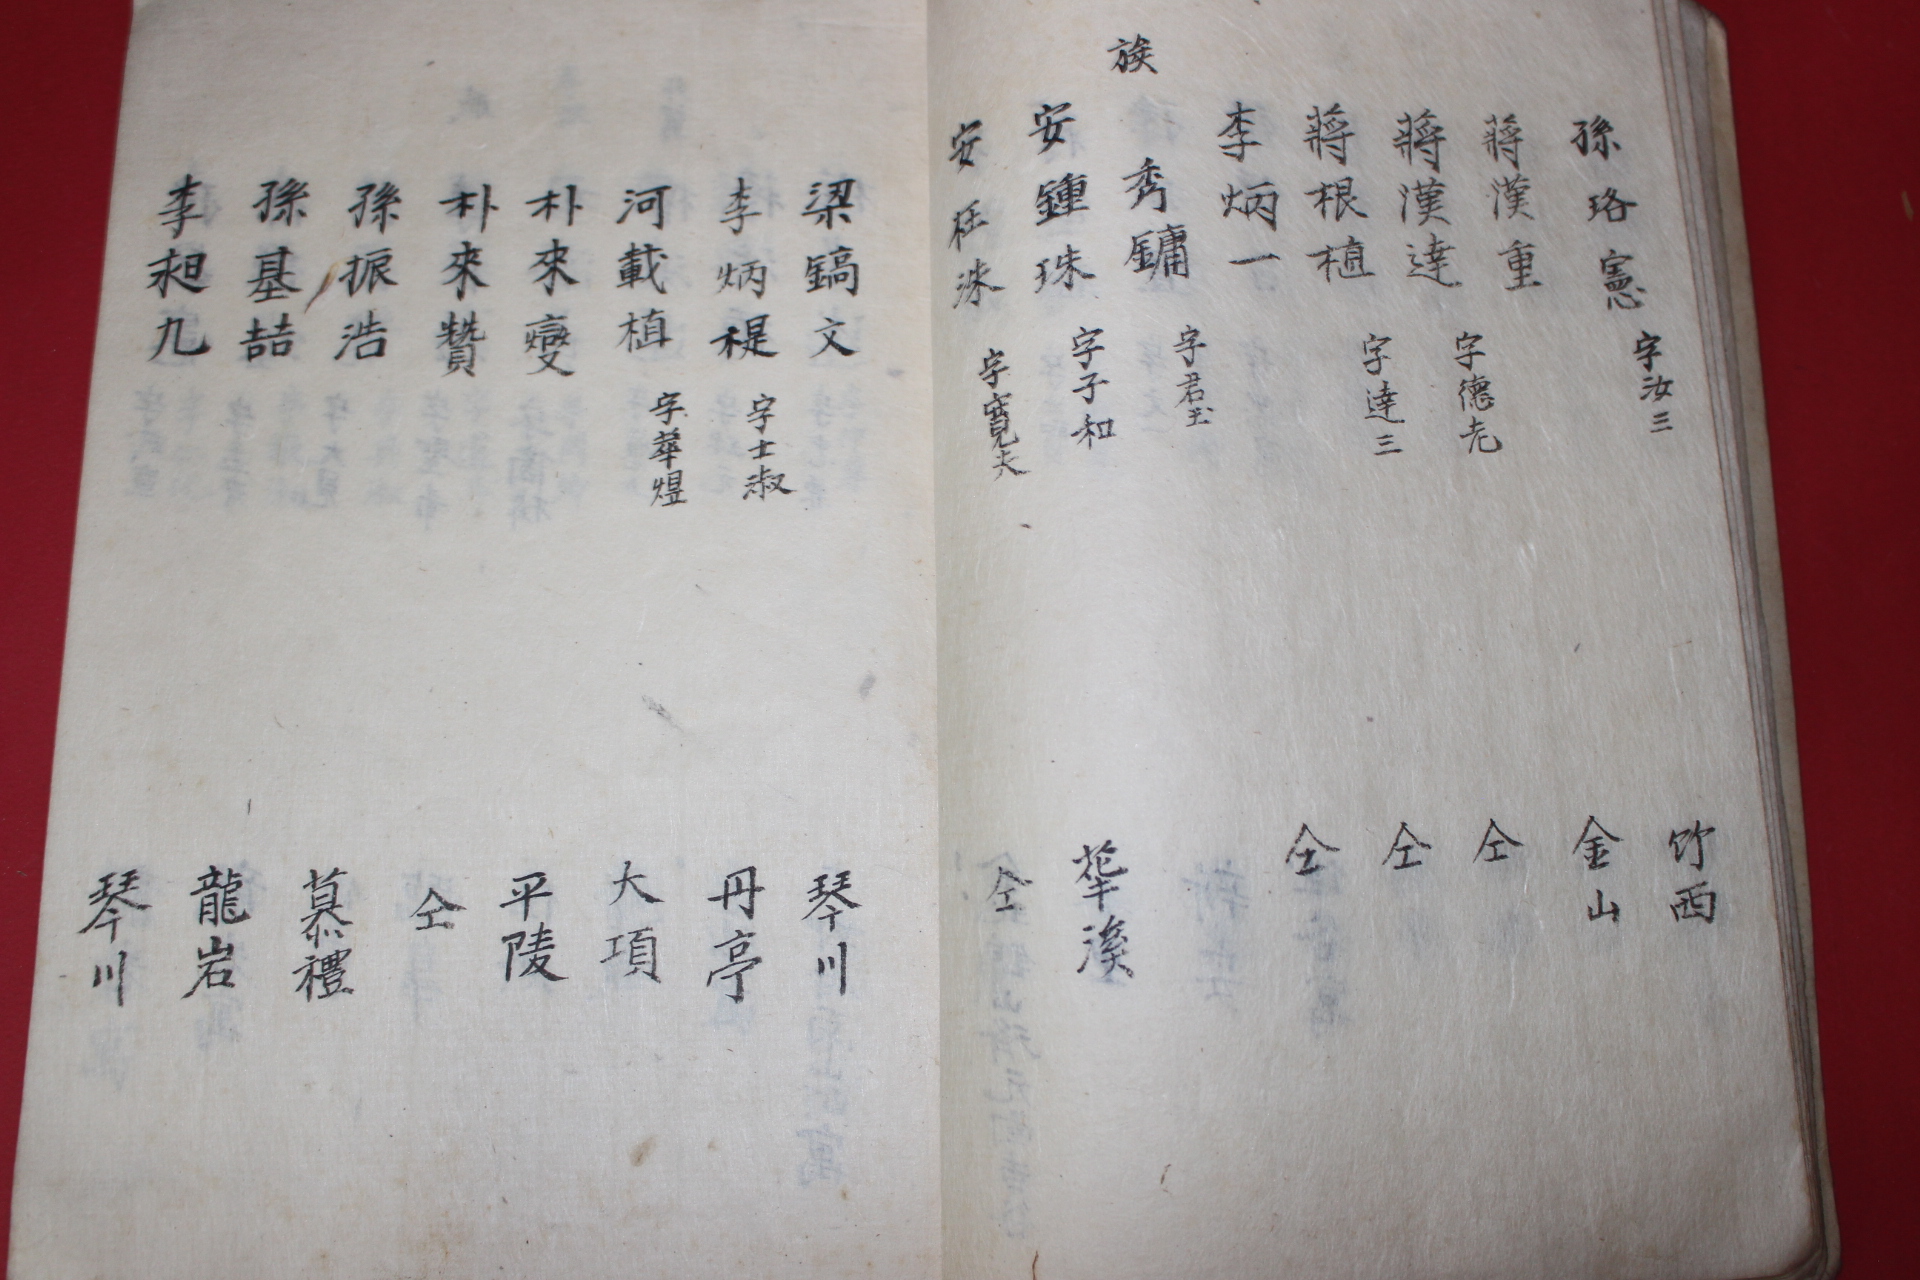 孫珞憲 字汝三 竹西
蔣漢重 字德老 金山
蔣漢達 字達三 仝
蔣根植 仝
李炳一 仝
族 秀鏞 字君玉
安鍾珠 字子和 華溪
安鉒洙 字寬夫 仝
梁鎬文 琴川
李炳禔 字士淑 丹亭
河載植 字華煜 大項
朴來燮 平陵
朴來贊 仝
孫振浩 慕禮
孫基喆 龍岩
李昶九 琴川